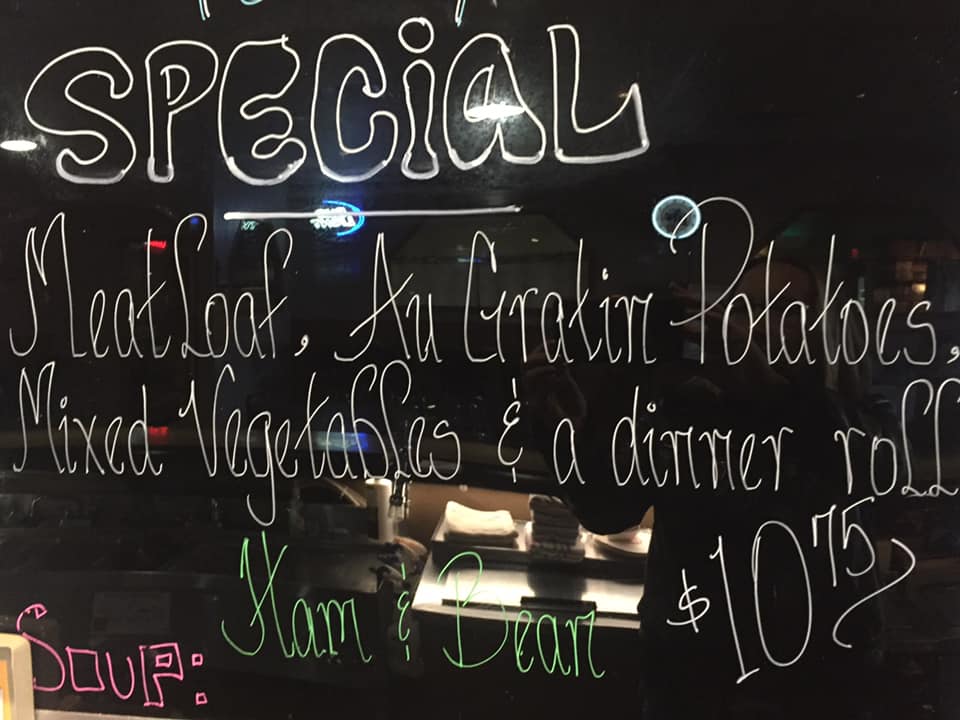 SPECiAL
MeatLoaf, Au Gratin Potatoes,
Mixed Vegetables & a dinner roll
$10.75
Soup: Ham & Bean